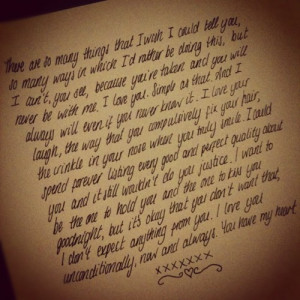 There are so many things that I wish I could tell you,
so many ways in which I'd rather be doing this, but
I can't, you see, because you're taken and you will
never be with me. I love you. Simple as that. And I
always will even if you never know it. I love your
laugh, the way that you compulsively fix your hair,
the crinkle in your nose when you truly smile. I could
spend forever listing every good and perfect quality about
you and it still wouldn't do you justice. I want to
be the one to hold you and the one to kiss you
goodnight, but it's okay that you don't want that,
I don't expect anything from you. I love you
unconditionally, now and always. You have my heart
xxxxxxx